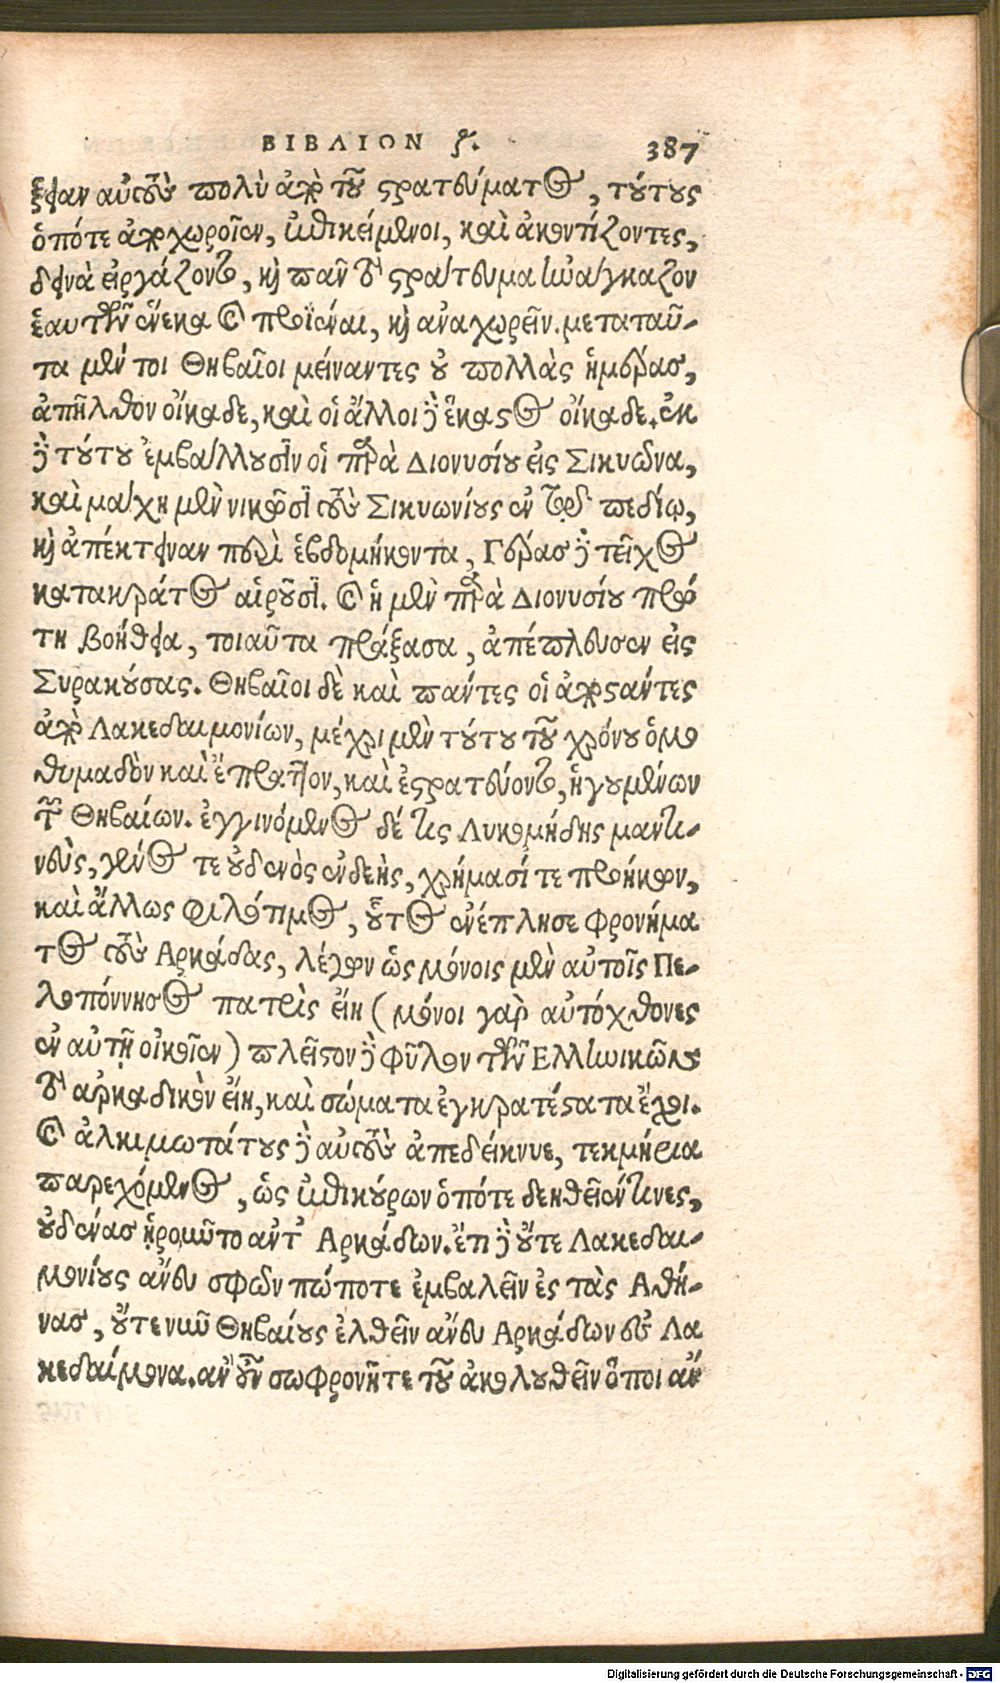 ΒΙΒΛΙΟΝ ζ. 387
ξειαν αὐτοὺς πολὺ ἀπὸ τοῦ στρατεύματος, τούτους
ὁπότε ἀποχωροῖεν, ἐπικείμενοι, καὶ ἀκοντίζοντες,
δεινὰ εἰργάζοντο, καὶ πᾶν τὸ στράτευμα ἠνάγκαζον
ἑαυτῶν ἕνεκα καὶ προϊέναι, καὶ ἀναχωρεῖν. μεταταῦ-
τα μέν τοι Θηβαῖοι μείναντες οὐ πολλὰς ἡμέρας,
ἀπῆλθον οἴκαδε, καὶ οἱ ἄλλοι δὲ ἕκαστος οἴκαδε. ἐκ
δὲ τούτου ἐμβάλλουσιν οἱ παρὰ Διονυσίου εἰς Σικυῶνα,
καὶ μάχῃ μὲν νικῶσι τοὺς Σικυωνίους ἐν τῷ πεδίῳ,
καὶ ἀπέκτειναν περὶ ἑβδομήκοντα, Γέρας δὲ τεῖχος
κατακράτος αἱροῦσι. καὶ ἡ μὲν παρὰ Διονυσίου πρώ
τη βοήθεια, τοιαῦτα πράξασα, ἀπέπλευσεν εἰς
Συρακούσας. Θηβαῖοι δὲ καὶ πάντες οἱ ἀποστάντες
ἀπὸ Λακεδαιμονίων, μέχρι μὲν τούτου τοῦ χρόνου ὁμο
θυμαδὸν καὶ ἔπραττον, καὶ ἐστρατεύοντο, ἡγουμένων
τῶν Θηβαίων. ἐγγινόμενος δέ τις Λυκομήδης μαντι-
νεὺς, γένος τε οὐδενὸς ἐνδεὴς, χρήμασί τε προήκων,
καὶ ἄλλως φιλότιμος, οὗτος ἐνέπλησε φρονήμα
τος τοὺς Ἀρκάδας, λέγων ὡς μόνοις μὲν αὐτοῖς Πε-
λοπόννησος πατρὶς εἴη (μόνοι γὰρ αὐτόχθονες
ἐν αὐτῇ οἰκοῖεν) πλεῖστον δὲ φῦλον τῶν Ελληνικῶν
τὸ ἀρκαδικὸν εἴη, καὶ σώματα ἐγκρατέστατα ἔχοι.
καὶ ἀλκιμωτάτους δὲ αὐτοὺς ἀπεδείκνυε, τεκμήρια
παρεχόμενος, ὡς ἐπικούρων ὁπότε δεηθεῖέν τινες,
οὐδένας ᾑροῦντο ἀντ' Ἀρκάδων. ἔτι δὲ οὔτε Λακεδαι-
μονίους ἄνευ σφῶν πώποτε ἐμβαλεῖν ἐς τὰς Αθή-
νας, οὔτε νῦν Θηβαίους ἐλθεῖν ἄνευ Ἀρκάδων εἰς Λα
κεδαίμονα. ἂν οὖν σωφρονῆτε τοῦ ἀκολουθεῖν ὅποι ἄν
Digitalisierung gefördert durch die Deutsche Forschungsgemeinschaft - DFG